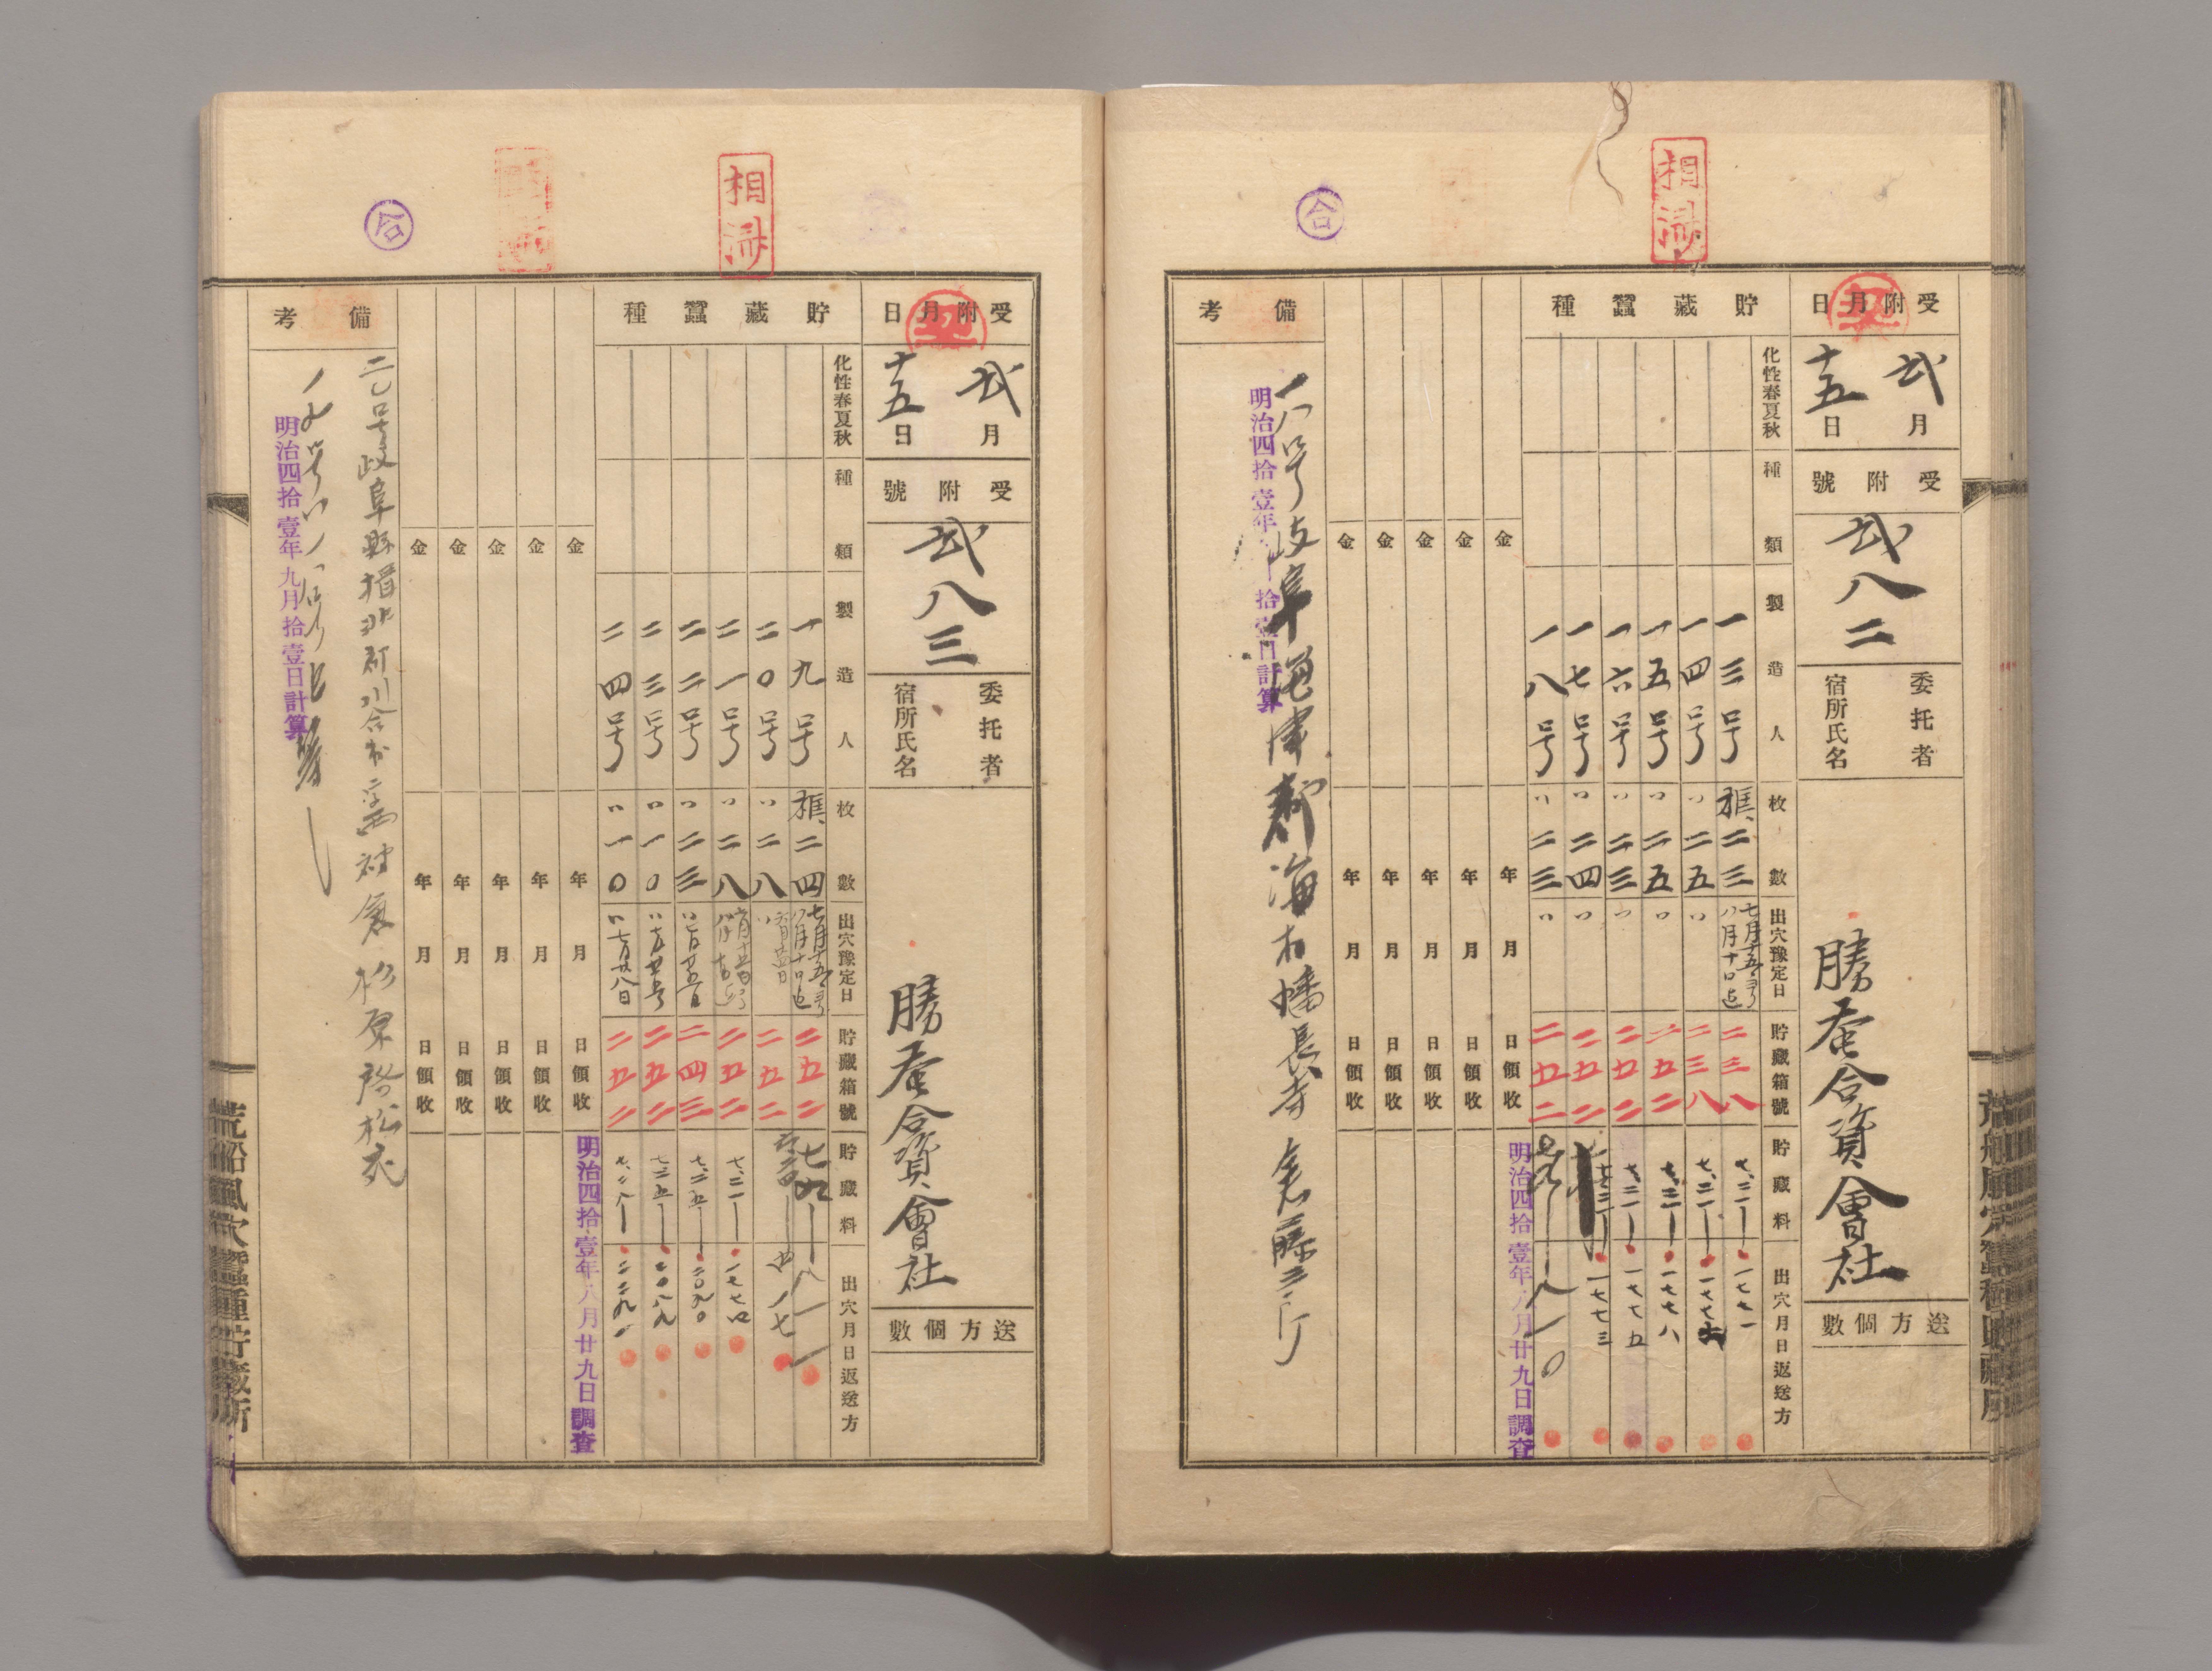 相済
合
受附月日
契
弐月
十五日
受附號
弐八二
委托者
宿所氏名
勝蚕合資會社
送方個數
貯藏蠶種
化性春夏秋
種類
製造人
枚數
出穴豫定日
貯藏箱號
貯藏料
出穴月日返送方
一三号 框、二三 七月十五日ヨリ 八月十日迄 二三八 七、二一 一七七一
一四号 〃二五 〃 二三八 七、二一
一五号 〃二五 〃 二五二 七、二一 一七七八
一六号 〃二三 〃 二五二 七、二一 一七七五
一七号 〃二四 〃 二五二 一七七三
一八号 〃二三 〃 二五二 八一〇
明治四拾壹年八月廿九日調査
金 年 月 日領收
金 年 月 日領收
金 年 月 日領收
金 年 月 日領收
金 年 月 日領收
備考
一八号岐阜 海津郡海西 幡長寺
明治四拾壹年 拾壹日計算
相済
合
受附月日
契
弐月
十五日
受附號
弐八三
委托者
宿所氏名
勝蚕合資會社
送方個數
貯藏蠶種
化性春夏秋
種類
製造人
枚數
出穴豫定日
貯藏箱號
貯藏料
出穴月日返送方
一九号 框、二四 七月十五日ヨリ 八月十日迄 二五二 八一一
二〇号 〃二八 二五二
二一号 〃二八 二五二 七、二一 一七七〇
二二号 〃二三 二四三 七、二五 二〇九〇
二三号 〃一〇 二五二 七、二五 二〇八九
二四号 〃一〇 〃七月廿八日 二五二 七、二八 二二九一
明治四拾壹年八月廿九日調査
金 年 月 日領收
金 年 月 日領收
金 年 月 日領收
金 年 月 日領收
金 年 月 日領收
備考
二〇号岐阜縣揖斐郡川合村 杉原
明治四拾壹年九月拾壹日計算
荒船風穴蠶種貯藏所